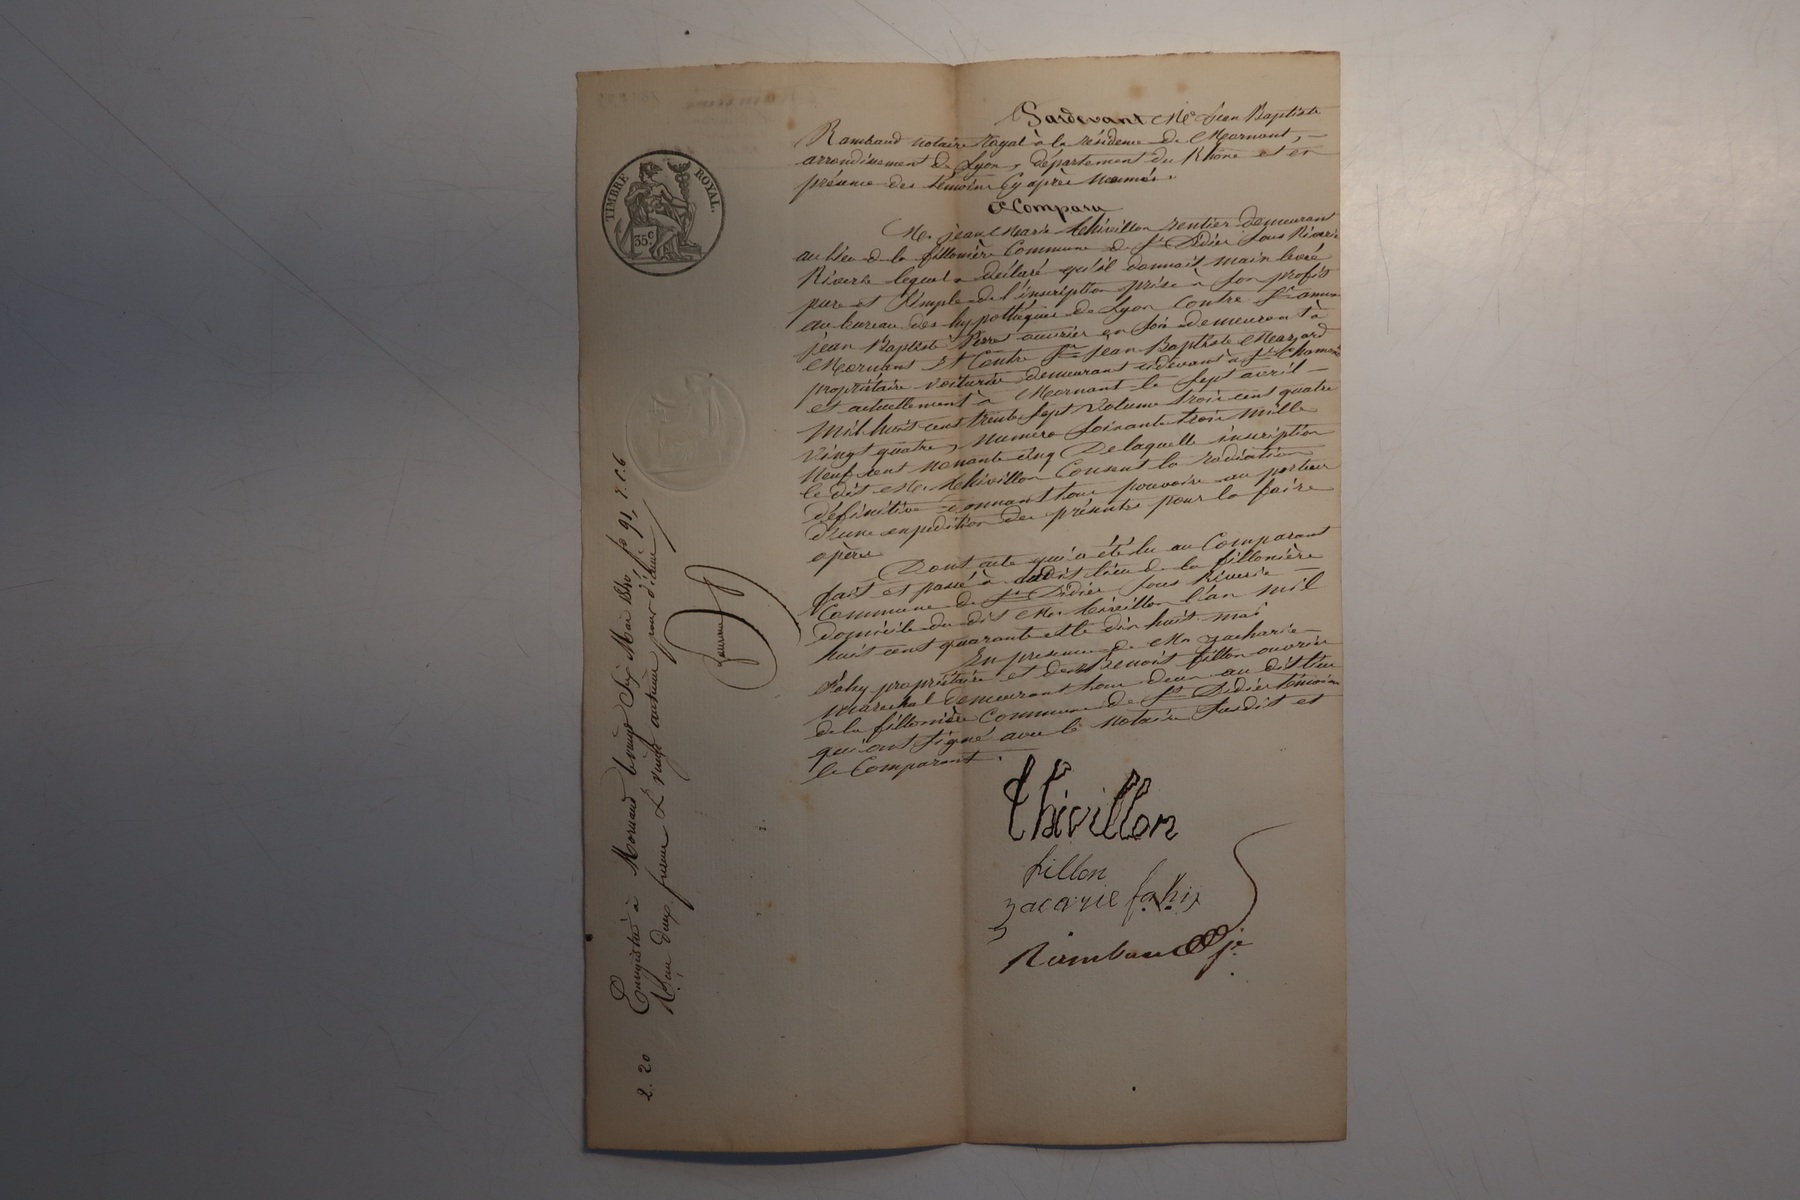 TIMBRE ROYAL.
35c
Pardevant Me Jean Baptiste
Rambaud notaire Royal à la résidence de Mornant,
arrondissement de Lyon, département du Rhône et en
présence des témoins Cy après nommés.
a Comparu
Mr jean Marie thivillon rentier demeurant
au lieu de la fillonière Commune de St Didier Sous Riverie
Riverie lequel a déclaré qu'il donnait main levée
pure et Simple de l'inscription prise à Son profit
au bureau des hypothèques de Lyon Contre Sr
jean Baptiste ouvrier en Soie demeurant à
Mornant Et Contre Sr jean Baptiste
propriétaire voiturier demeurant cidevant à St Chamond
et actuellement à Mornant le Sept avril
mil huit cent trente Sept volume trois cent quatre
vingt quatre, numéro Soixante trois mille
neuf cent nonante cinq De laquelle inscription
le dit Mr thivillon Consent la radiation
définitive donnant tous pouvoirs au porteur
d'une expédition des présentes pour la faire
opérer
Dont acte qui a été lu au Comparant
fait et passé à audit lieu de la fillonière
Commune de St Didier Sous Riverie
domicile du dit Mr thivillon l'an mil
huit cent quarante et le dix huit mai
En présence de Mr zacharie
fahy propriétaire et de Benoit fillon ouvrier
maréchal demeurant tous deux au dit lieu
de la fillonière Commune de St Didier témoins
qui ont Signé avec le notaire Susdit et
le Comparant.
thivillon
fillon
zacarie fahy
Rambaud
Enregistré à Mornant le vingt Six Mai 1840 fo 91, r. c. 6
Reçu deux francs & vingt centimes pour décime
2. 20